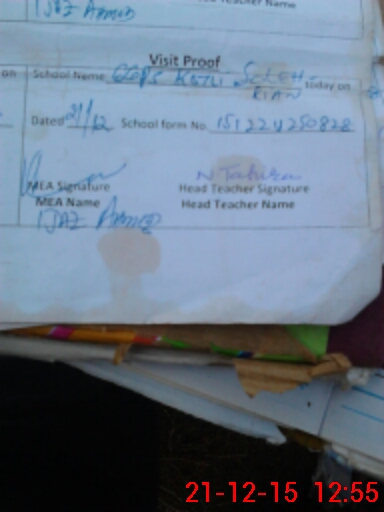 Teacher Name
IJAZ Ahmed
Visit Proof
on School Name GGPS KOTLI SALEH today on
RIAN
Dated 21/12 School form No. 151224250828
MEA Signature Head Teacher Signature
MEA Name Head Teacher Name
IJAZ Ahmed
21-12-15 12:55